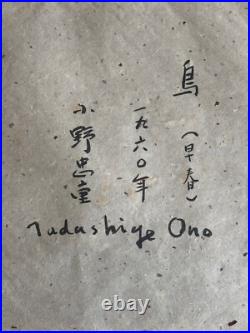 鳥(早春)
一九六〇年
小野忠重
Tadashige Ono